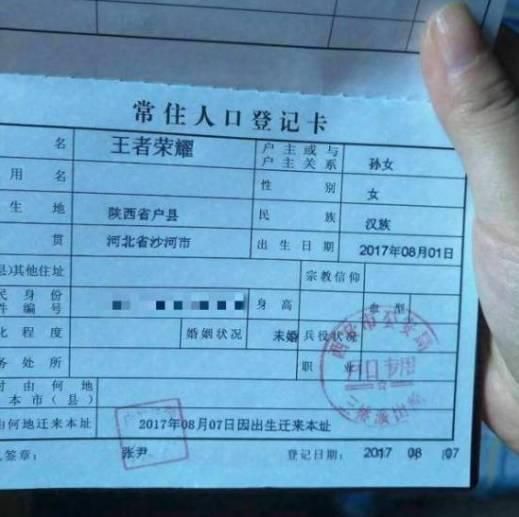 常住人口登记卡
名 王者荣耀 户主或与户主关系 孙女
用名 性别 女
生地 陕西省户县 民族 汉族
贯 河北省沙河市 出生日期 2017年08月01日
县)其他住址 宗教信仰
民身份
件编号 身高 血型
化程度 婚姻状况 未婚 兵役状况
务处所 职业
时由何地
本市(县)
由何地迁来本址 2017年08月07日因出生迁来本址
人签章: 张尹 登记日期: 2017 08 07
西安市公安局
户口专用